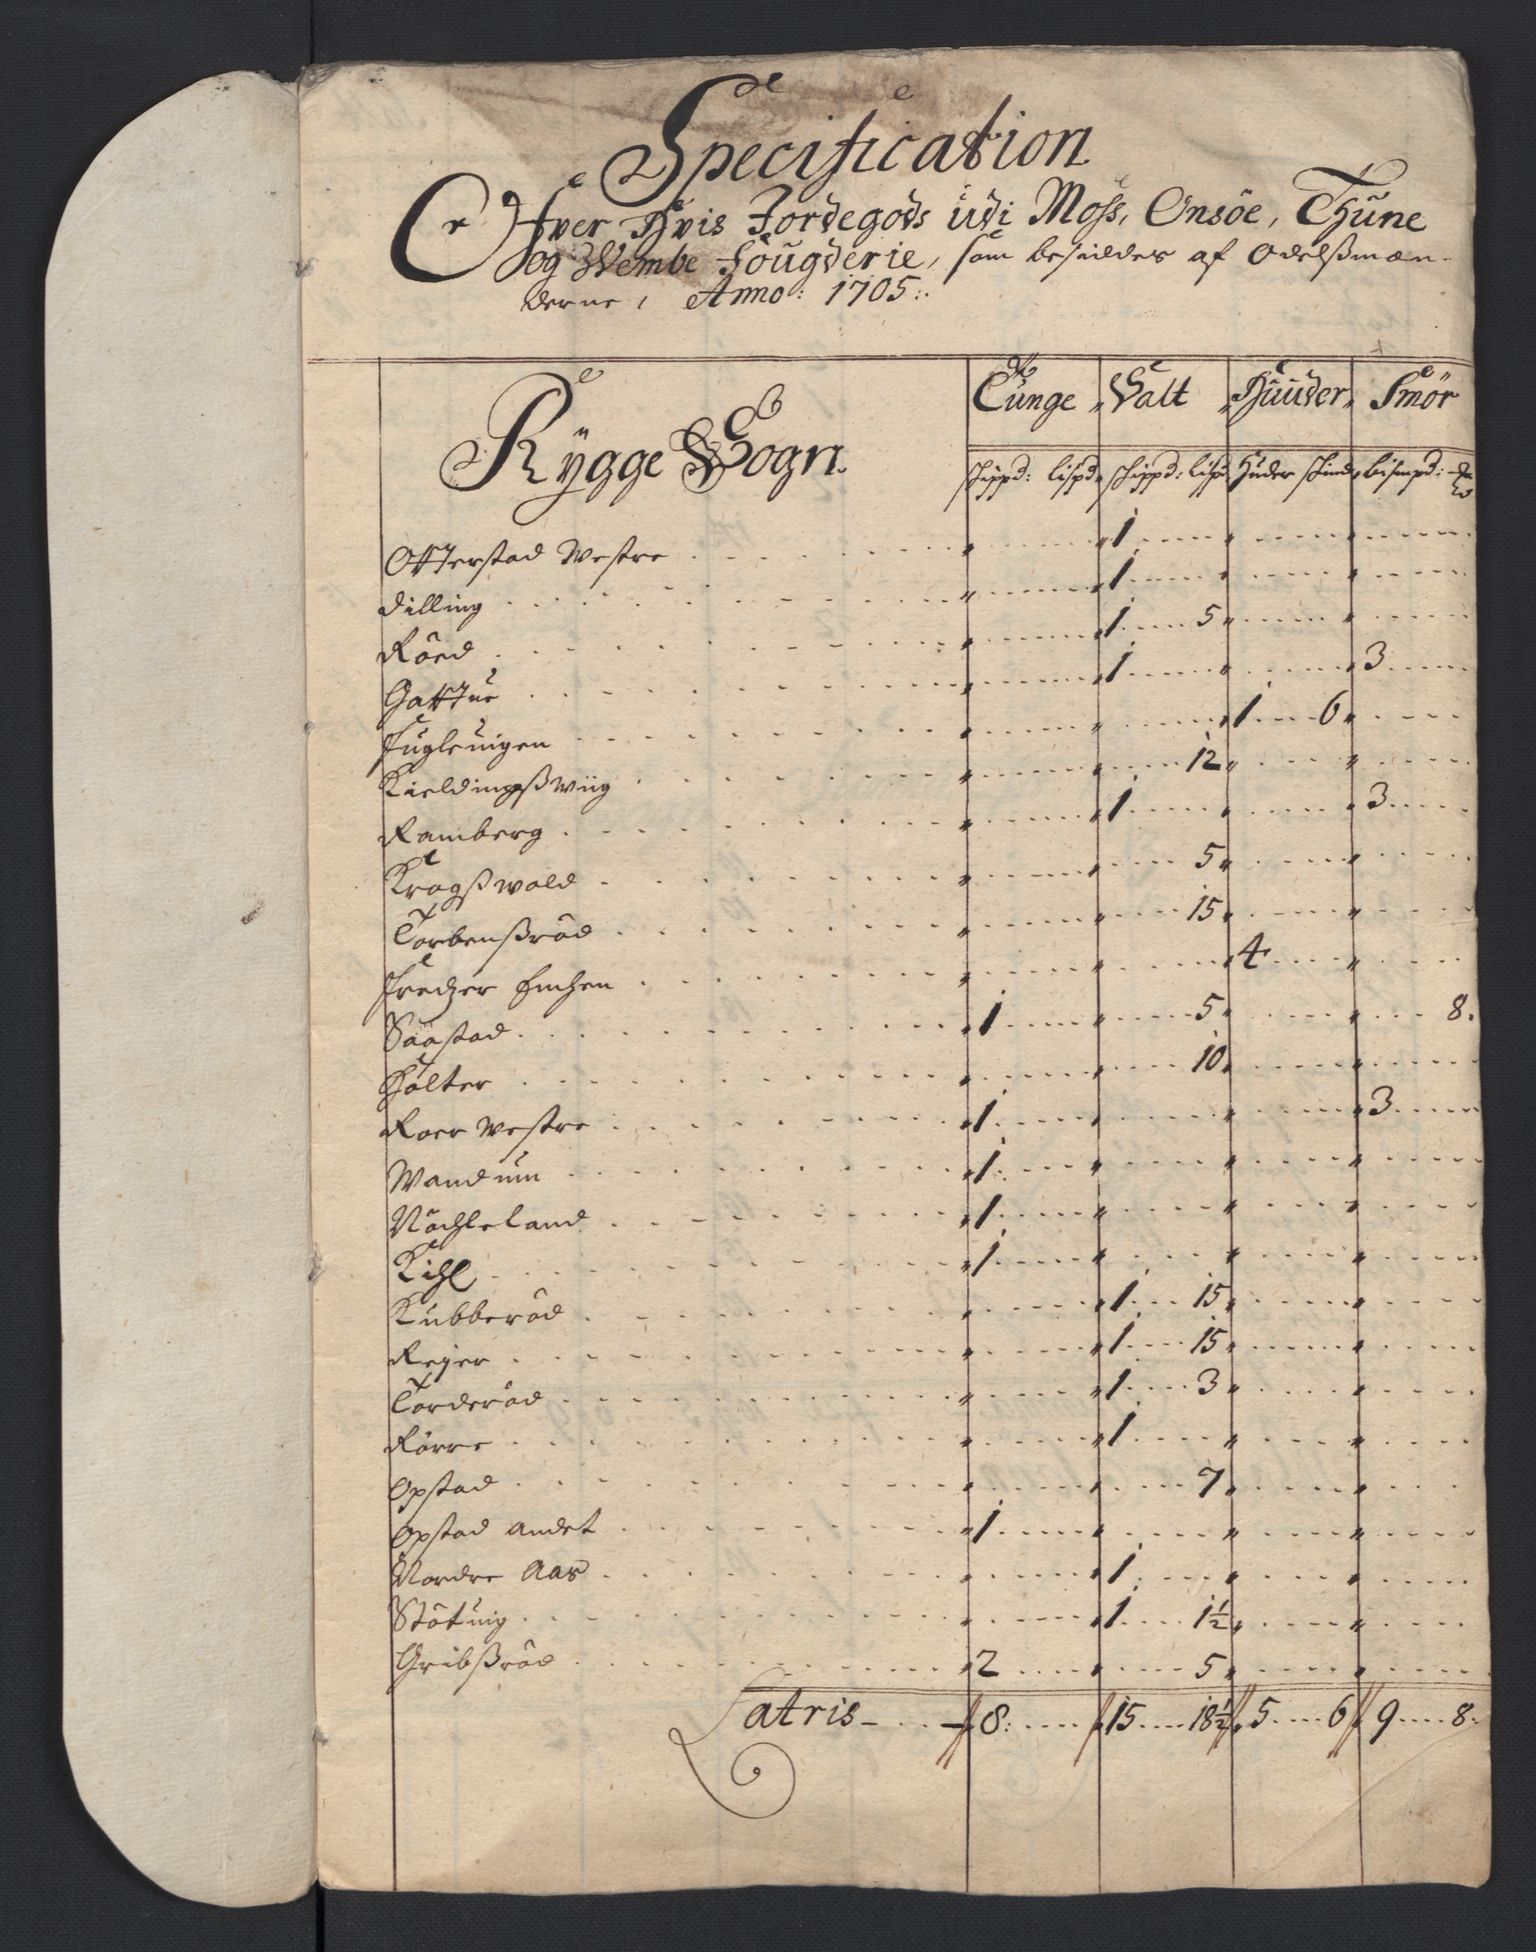 Specification
Ofver Hvis Jordegods udi Moss, Onsöe, Thune
og Wembe Fougderie, som besiddes af Odelßmæn-
derne, Anno: 1705:.
Rygge Sogn. Tunge Salt Huuder Smör
skippd: lispd skippd: lispd Huder skind bismpd:
Otterstad Westre 1
Dilling 1
Röed 1 5
Gattue 1 3
Fugleuigen 1 6
Kieldingßwiig 12
Ramberg 1 3
Krogßwold 5
Torbenßröd 15
Fredger Enchen 4
Saastad 1 5 8.
Holter 10
Roer Westre 1 3
Wandum 1
Nöchleland 1
Kihl 1
Kubberöd 1 15
Rejer 1 15
Torderöd 1 3
Rörre 1
Opstad 7
Opstad Andet 1
Nordre Aas 1
Stötuig 1 1½
Gribßröd 2 5
Latris 8: 15 18½ 5 6 9 8: